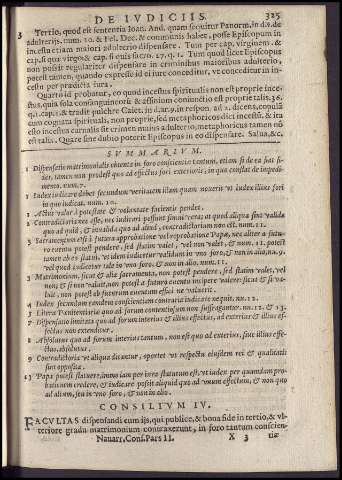 DE IVDICIIS. 325
3 Tertio, quod est sententia Ioan. And. quam sequitur Panorm. in d. c. de
adulterijs. num. 20. & Fel. Dec. & communis habet, posse Episcopum in
incestu etiam maiori adulterio dispensare. Tum per cap. virginem. &
cap. si qua virgo & cap. si quis sacro. 27. q. 1. Tum quod licet Episcopus
non possit regulariter dispensare in criminibus maioribus adulterio,
potest tamen, quando expresse id ei iure conceditur, vt conceditur in incestu
per praedicta iura.
Quarto id probatur, eo quod incestus spiritualis non est proprie incestus,
quia sola consanguineorũ & affinium coniunctio est proprie talis. 36.
q. 1. cap. 1. & tradit pulchre Caiet. in
cum cognata spirituali, non proprie, sed metaphoricos dici incestũ. & ita
etsi incestus carnalis sit crimen maius adulterio, metaphoricus tamen nõ
est talis. Quare sine dubio poterit Episcopus in eo dispensare. Salua, &c.
SVMMARIVM.
1 Dispensatio matrimonialis obtenta in foro conscientiae tantum, etiam si de ea fiat fides,
tamen non prodest quo ad effectus fori exterioris, in quo constat de impedimento.
num. 7.
2 Iudex iudicare debet secundum veritatem illam quam nouerit vt iudex illius fori
in quo iudicat. num. 10.
Actus valor à potestate & voluntate facientis pendet.
Contradictoria nec esse, nec iudicari possunt simul vera; at quod aliqua sint valida
quo ad quid, & inualida quo ad aliud, contradictorium non est. num. 11.
Sacramentum
euentu potest pendere, sed statim valet, vel non valet, & num. 11. potest
tamen ab eo statui, vt idem iudicetur validum in vno foro, & non in alio, na. 9.
vel quod iudicetur tale in vno foro, & non in alio. num. 11.
3 Matrimonium, sicut & alia sacramenta, non potest pendere, sed statim valet, vel
non, & si non valuit, non potest à futuro euentu incipere valere: sicut & si valuit,
non potest ob futurum euentum effici ne valuerit.
4 Index secundum eandem conscientiam contraria iudicare nequit. nu. 12.
Litera Poenitentiariae quo ad forum contentiosum non suffragantur. nu. 12. & 13.
7 Dispensatio limitata quo ad forum interius & illius effectus, ad exterius & illius effectus
non extenditur.
8 Absolutus quo ad forum interius tantum, non est quo ad exterius, siue illius effectus,
absolutus.
9 Contradictoria vt aliqua dicantur, oportet vt respectu eiusdem rei & qualitatis
sint apposita.
13 Papa potest statuere, immo iam per iura statutum est, vt iudex per quandam probationem
credere, & iudicare possit aliquid quo ad vnum effectum, & non quo
ad alium, seu in vno foro, & non in alio.
CONSILIVM IV.
FACVLTAS dispensandi cum ijs, qui publice, & bona fide in tertio, & vlteriore
gradu matrimonium contraxerunt, in foro tantum conscien-
Nauarr. Cons. Pars II. X 3 tiæ